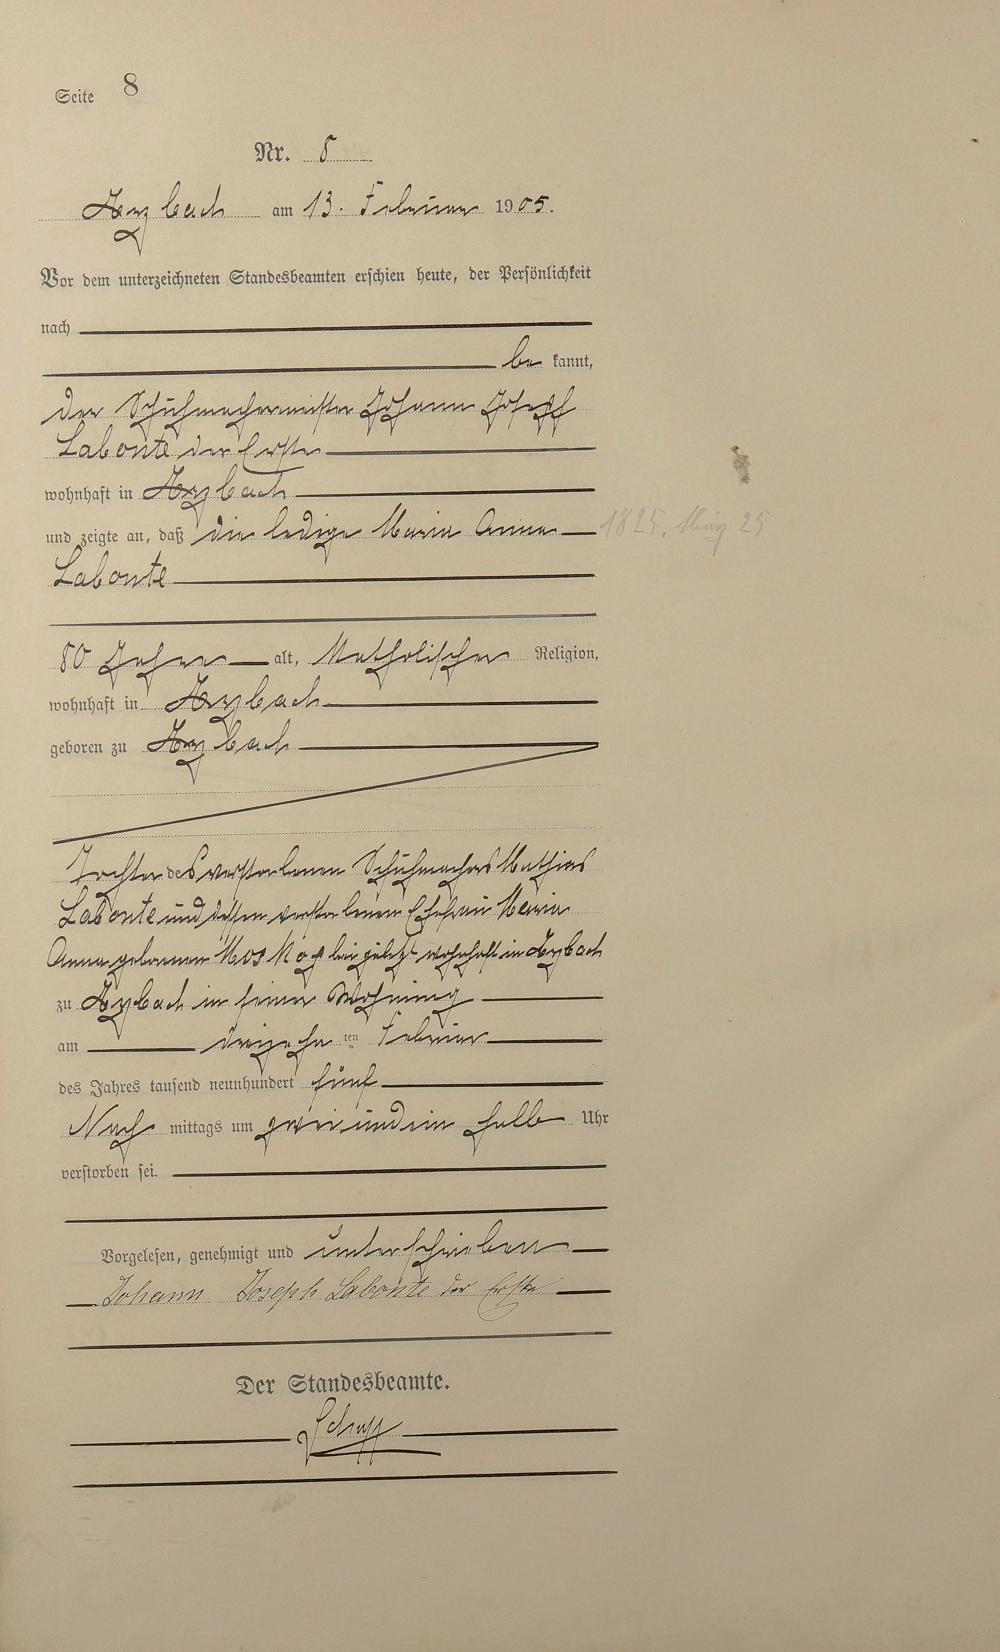 Seite 8
Nr. 8
Arzbach am 13. Februar 1905.
Vor dem unterzeichneten Standesbeamten erschien heute, der Persönlichkeit
nach
be kannt,
der Schuhmachermeister Johann Josepf
Labonte der Erste
wohnhaft in Arzbach
und zeigte an, daß die ledige Maria Anna
1825. März 25
Labonte
80 Jahre alt, Katholischer Religion,
wohnhaft in Arzbach
geboren zu Arzbach
Tochter des verstorbenen Schuhmachers Mathias
Labonte und dessen verstorbenen Ehefrau Maria
Anna geborenen beide zuletzt wohnhaft in Arzbach
zu Arzbach in seiner Wohnung
am dreizehn ten Februar
des Jahres tausend neunhundert fünf
Nach mittags um zwei und ein halb Uhr
verstorben sei.
Vorgelesen, genehmigt und unterschrieben
Johann Joseph Labonte der Erste
Der Standesbeamte.